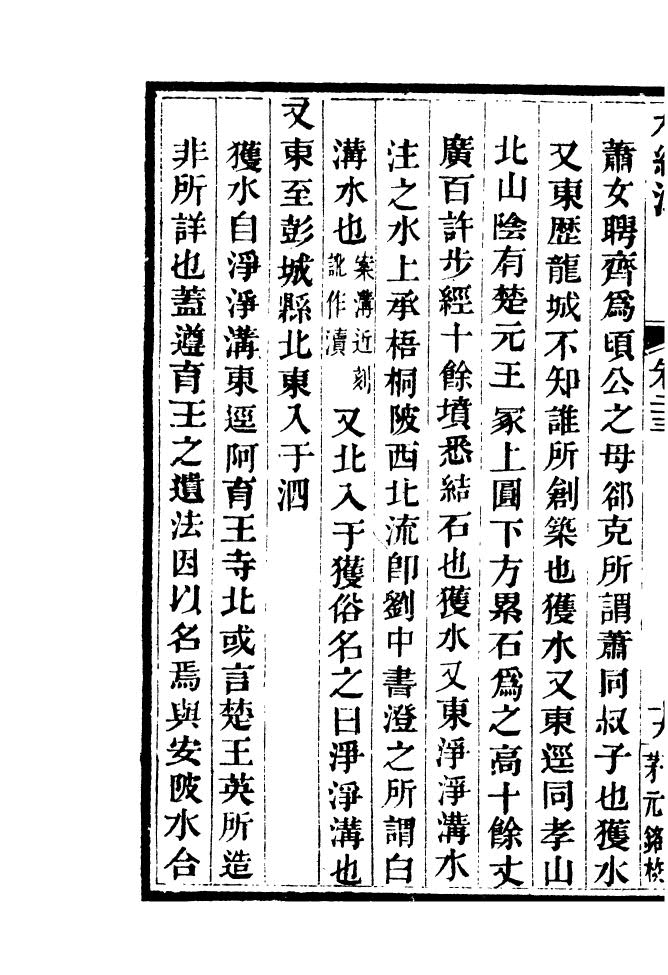 水經注
卷二三
茅元銘校
蕭女聘齊爲頃公之母郤克所謂蕭同叔子也獲水
又東歷龍城不知誰所創築也獲水又東逕同孝山
北山陰有楚元王冢上圓下方累石爲之高十餘丈
廣百許步經十餘墳悉結石也獲水又東淨淨溝水
注之水上承梧桐陂西北流即劉中書澄之所謂白
溝水也案溝近刻訛作瀆又北入于獲俗名之曰淨淨溝也
又東至彭城縣北東入于泗
獲水自淨淨溝東逕阿育王寺北或言楚王英所造
非所詳也蓋遵育王之遺法因以名焉與安陂水合